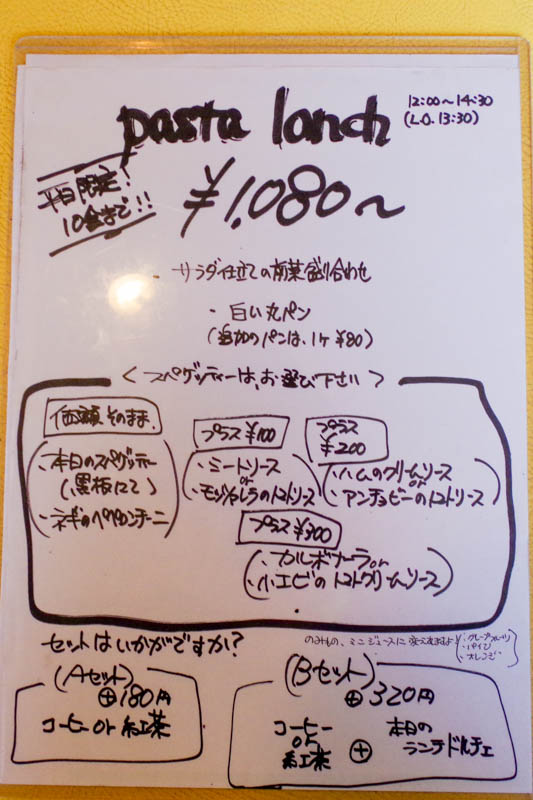 pasta lanch
12:00〜14:30
(L.O. 13:30)
平日限定!
10食まで!!
¥1,080〜
サラダ仕立ての前菜盛り合わせ
・白い丸パン
(追加のパンは、1ヶ ¥80)
<スパゲッティーは、お選び下さい>
価額そのまま、
・本日のスパゲッティー
(黒板にて)
・ネギのペペロンチーニ
プラス ¥100
・ミートソース
or
・モッツァレラのトマトソース
プラス
¥200
・ハムのクリームソース
or
・アンチョビーのトマトソース
プラス ¥300
・カルボナーラ or
・小エビのトマトクリームソース
セットはいかがですか?
のみもの、ミニジュースに変えられますよ
・グレープフルーツ
・パイン
・オレンジ
(Aセット)
⊕180円
コーヒー or 紅茶
(Bセット)
⊕320円
コーヒー
or
紅茶
⊕
本日の
ランチドルチェ